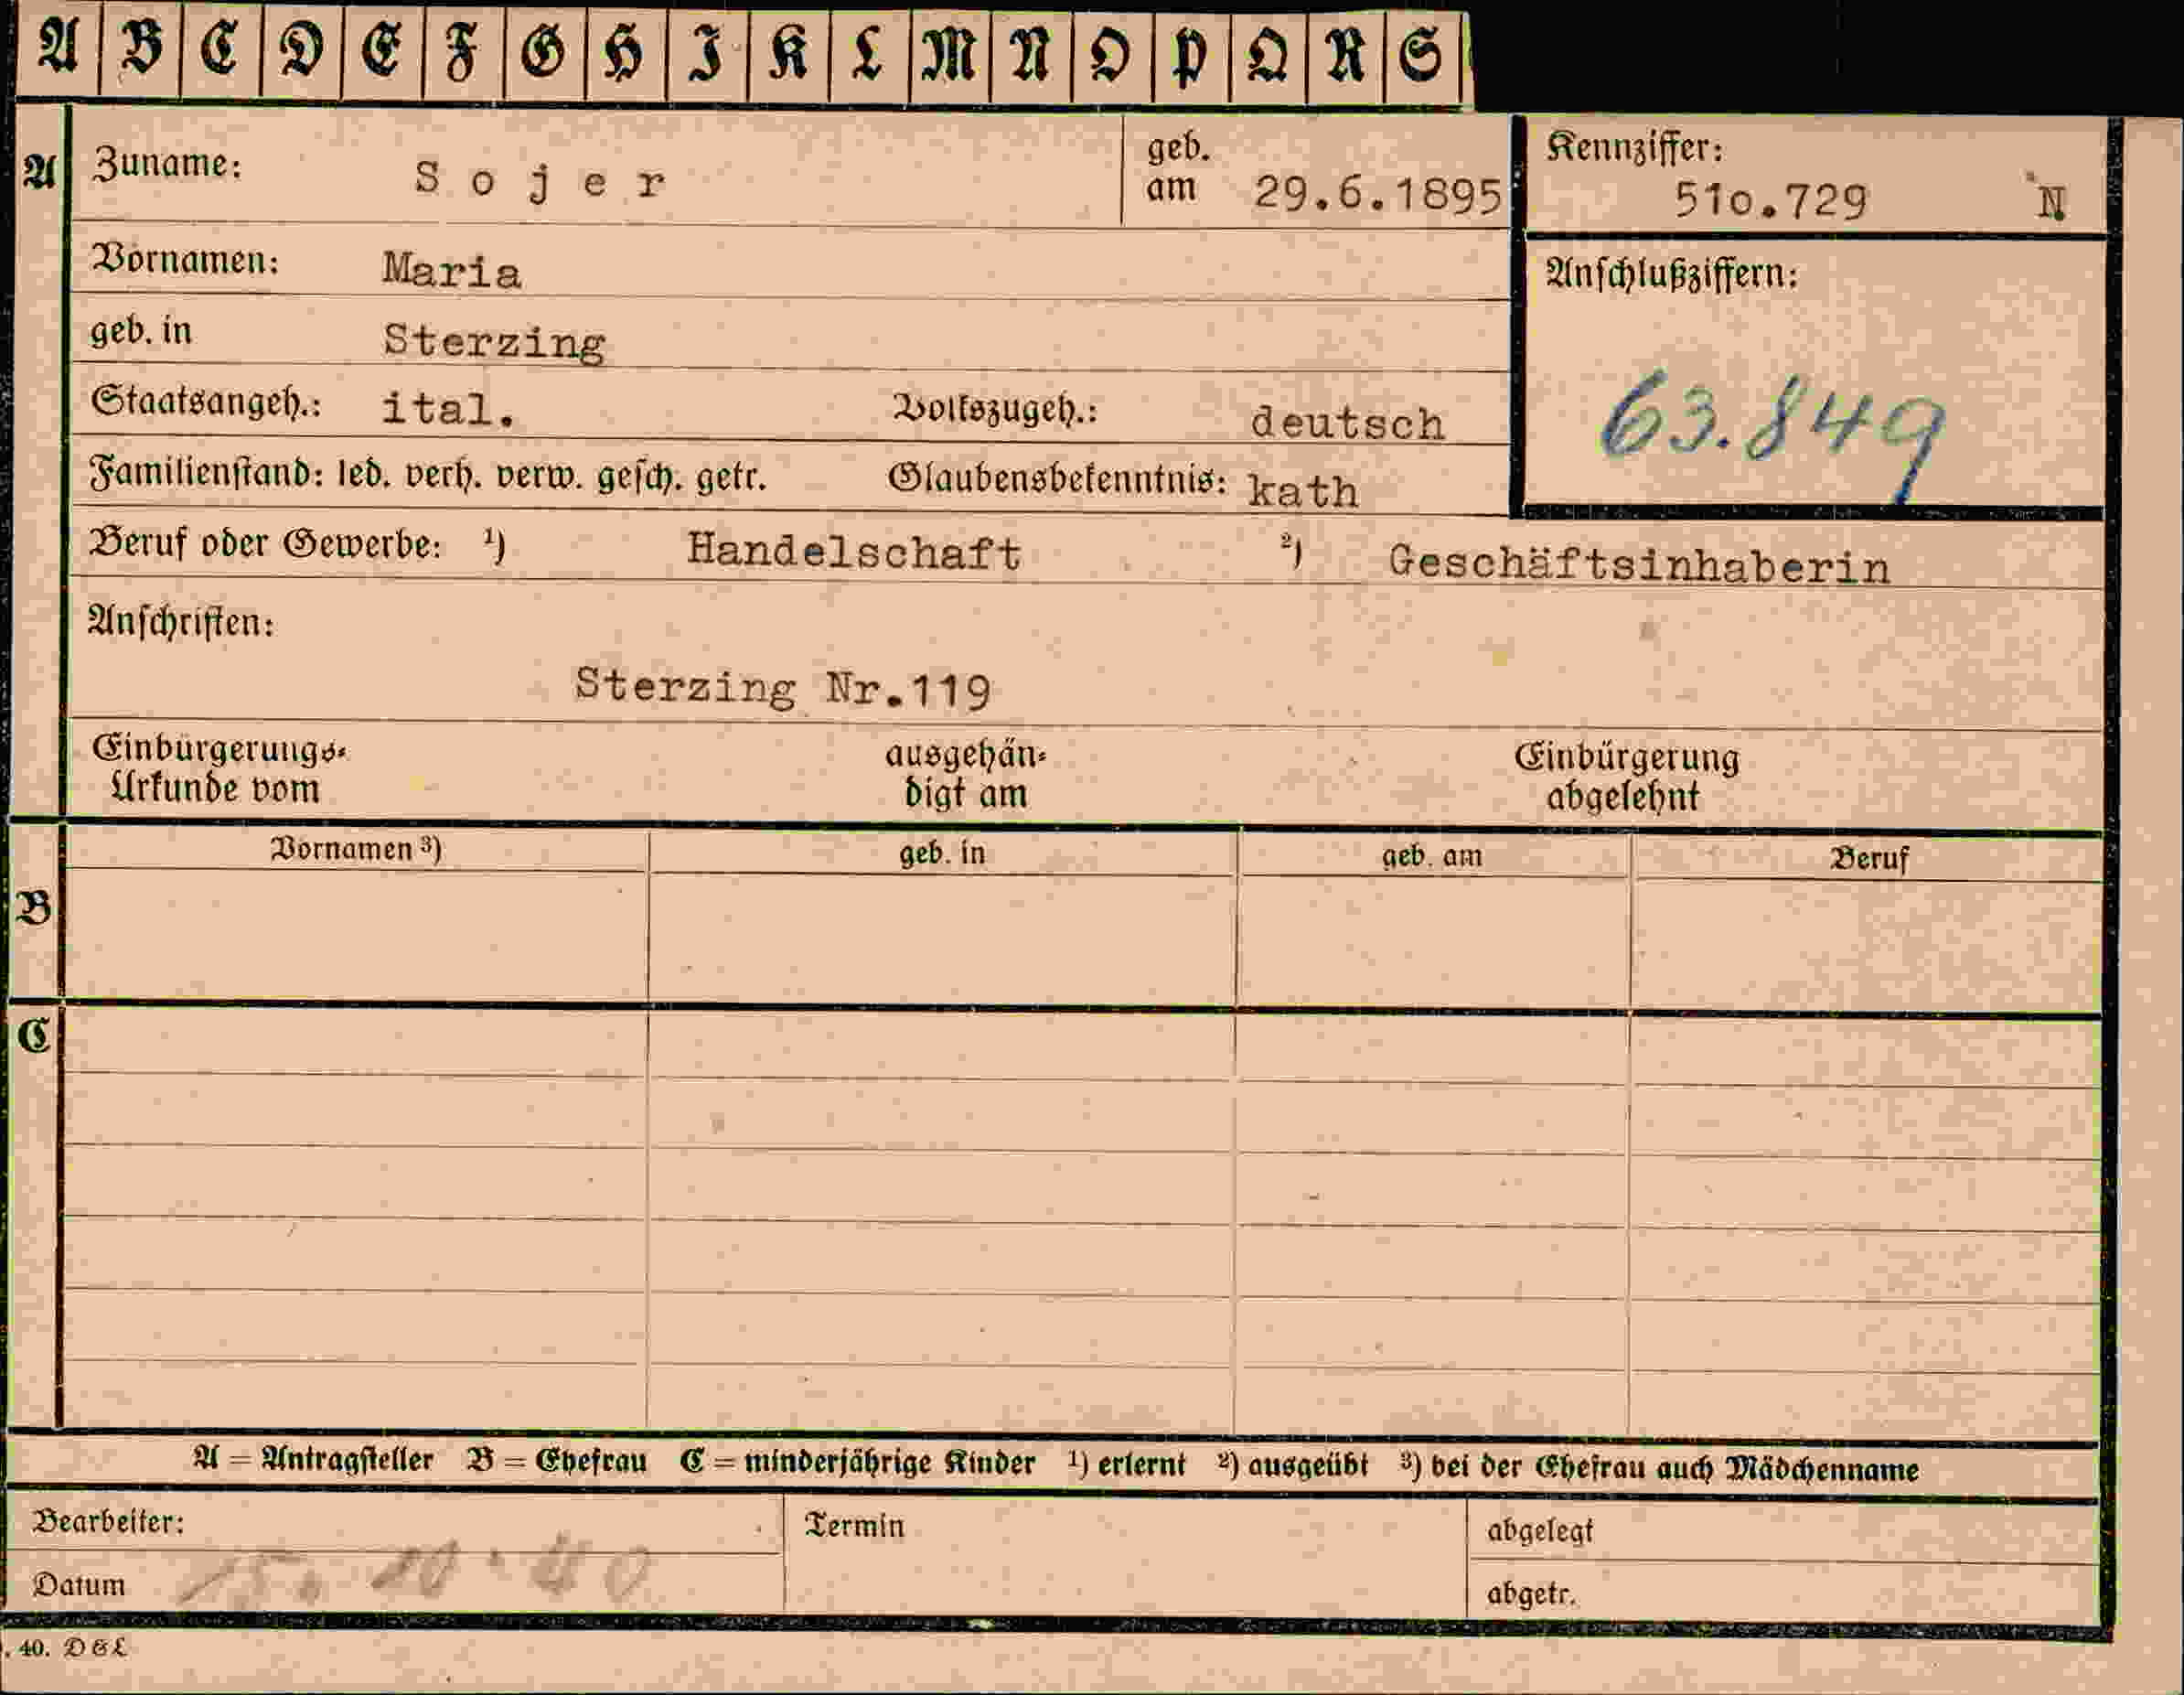 A B C D E F G H I K L M N O P Q R S
A Zuname: Sojer geb. am 29.6.1895 Kennziffer: 51o.729 N
Vornamen: Maria Anschlußziffern:
geb. in Sterzing 63.849
Staatsangeh.: ital. Volkszugeh.: deutsch
Familienstand: led. verh. verw. gesch. getr. Glaubensbekenntnis: kath
Beruf oder Gewerbe: 1) Handelschaft 2) Geschäftsinhaberin
Anschriften:
Sterzing Nr.119
Einbürgerungs- ausgehän- Einbürgerung
Urkunde vom digt am abgelehnt
B Vornamen 3) geb. in geb. am Beruf
C
A = Antragsteller B = Ehefrau C = minderjährige Kinder 1) erlernt 2) ausgeübt 3) bei der Ehefrau auch Mädchenname
Bearbeiter: Termin abgelegt
Datum 15. 10. 40 abgetr.
. 40. D & L